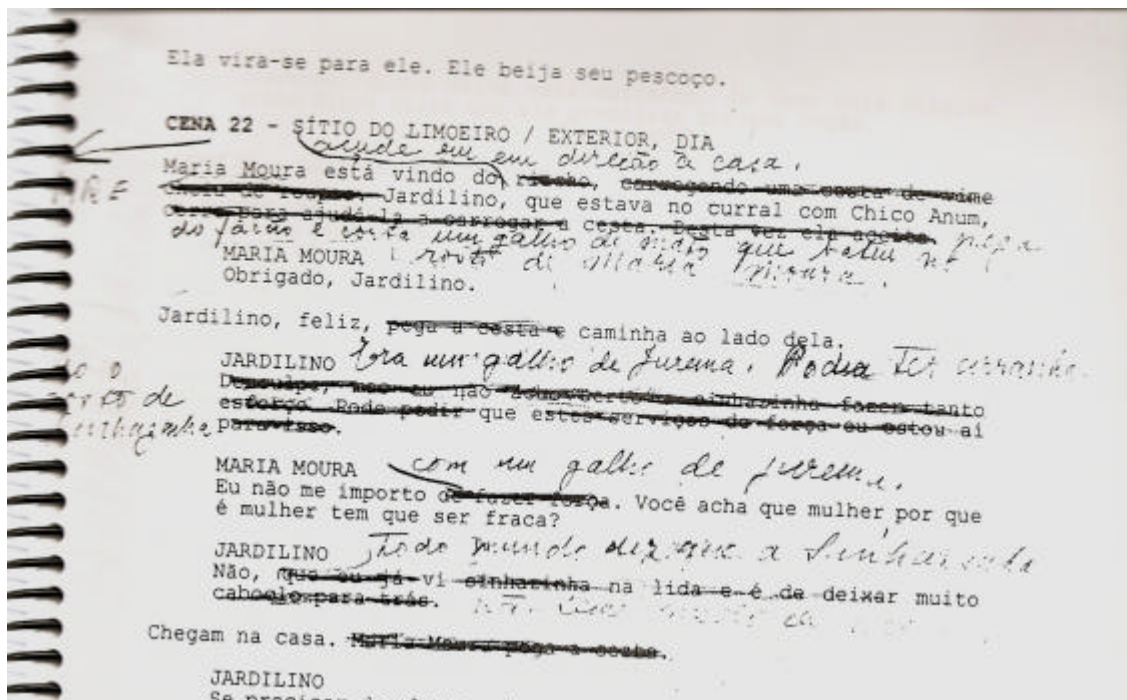 Ela vira-se para ele. Ele beija seu pescoço.
CENA 22 - SÍTIO DO LIMOEIRO / EXTERIOR, DIA
em direção à casa.
Maria Moura está vindo do riacho, carregando uma cesta de vime
cheia de roupas. Jardilino, que estava no curral com Chico Anum,
corre para ajudá-la a carregar a cesta. Desta vez ela aceita.
e corta um galho de mato que bateu no
MARIA MOURA rosto de Maria Moura.
Obrigado, Jardilino.
Jardilino, feliz, pega a cesta e caminha ao lado dela.
JARDILINO Era um galho de Jurema. Podia ter arranha
Desculpe, mas eu não sinhazinha fazer tanto
esforço. Pode pedir que estes serviços de força eu estou aí
para isso.
o
rosto de
MARIA MOURA com um galho de jurema.
Eu não me importo de fazer força. Você acha que mulher por que
é mulher tem que ser fraca?
JARDILINO Todo mundo diz que a
Não, que eu já vi sinhazinha na lida e é de deixar muito
caboclo para trás.
Chegam na casa. Maria Moura pega a
JARDILINO
Se